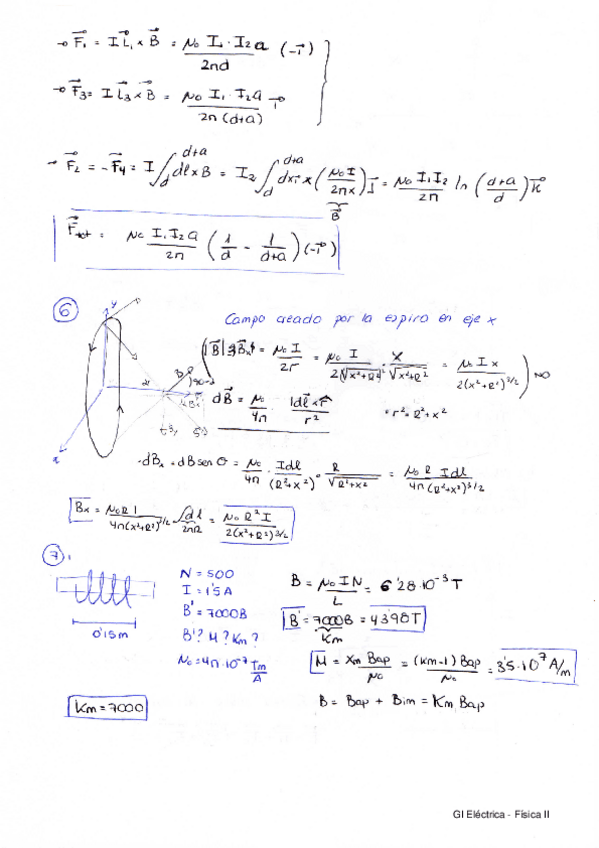 → F₁ = I L₁ × B = μ₀ I₁·I₂ a / 2πd (-i)
→ F₃ = I l₃ × B = μ₀ I₁·I₂ a / 2π(d+a) i
→ F₂ = -F₄ = I ∫_d^{d+a} dl × B = I₂ ∫_d^{d+a} dx i × (μ₀ I / 2πx) j = μ₀ I₁ I₂ / 2π ln (d+a / d) k
B
F_tot = μ₀ I₁ I₂ a / 2π (1/d - 1/d+a) (-i)
6
y
Campo creado por la espira en eje x
= μ₀ I / 2r = μ₀ I / 2(√x²+R²) · x / √x²+R² = μ₀ I x / 2(x²+R²)^{3/2} NO
dB = μ₀ / 4π |dl × r| / r²
= r² = R² + x²
· dB_x = dB sen θ = μ₀ / 4π · I dl / (R²+x²) · R / √R²+x² = μ₀ R I dl / 4π (R²+x²)^{3/2}
B_x = μ₀ R I / 4π(x²+R²)^{3/2} ∫dl = μ₀ R² I / 2(x²+R²)^{3/2}
2πR
7
N = 500
I = 1'5A
B' = 7000B
B'? M? Km?
μ₀ = 4π·10⁻⁷ Tm/A
0'15m
B = μ₀ I N / L = 6'28·10⁻³ T
B' = 7000B = 43'98T
Km
M = Xm Bap / μ₀ = (Km-1) Bap / μ₀ = 3'5·10⁷ A/m
Km = 7000
B = Bap + Bim = Km Bap
GI Eléctrica - Física II